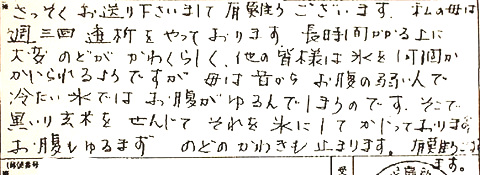 さっそくお送り下さいまして 有難うございます。私の母は
週三回 透析をやっております。長時間かかる上に
大変のどがかわくらしく、他の皆様は氷を何個か
かじられるようですが 母は昔からお腹の弱い人で
冷たい氷ではお腹がゆるんでしまうのです。そこで
黒いり玄米をせんじてそれを氷にしてかじっております。
お腹もゆるまず のどのかわきも止まります。有難うござ
(郵便番号
ます。
受